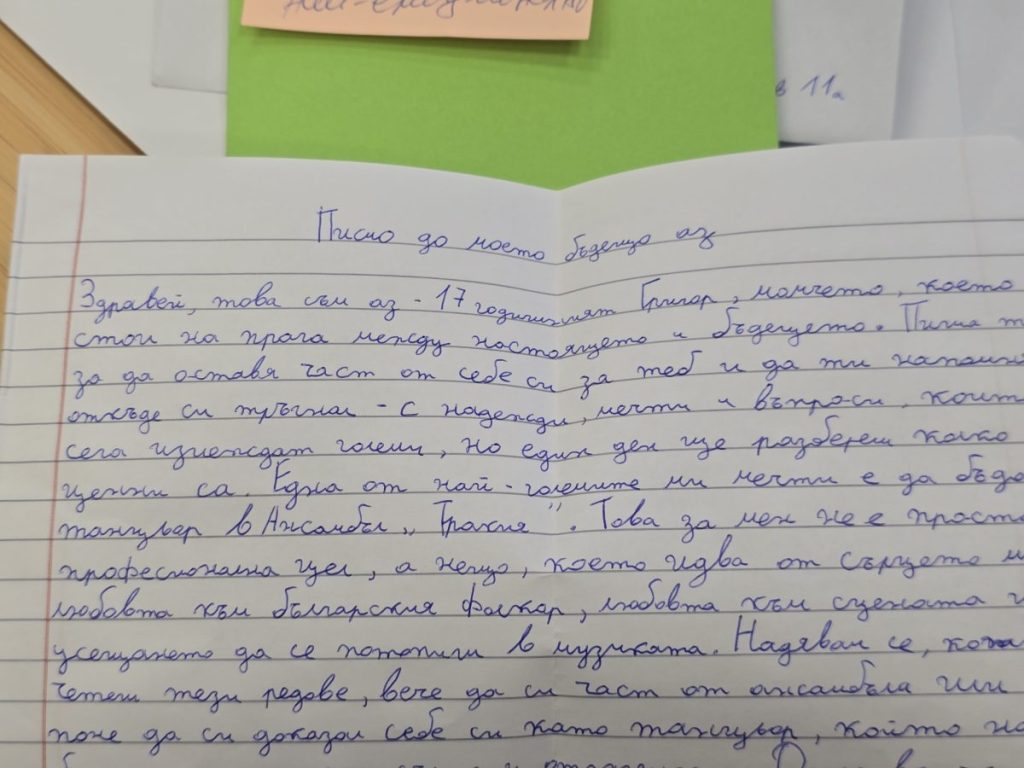 най-
в 11а
Писмо до моето бъдещо аз
Здравей, това съм аз - 17 годишният Григор, момчето, което
стои на прага между настоящето и бъдещето. Пиша т
за да оставя част от себе си за теб и да ти напомн
откъде си тръгнал - с надежди, мечти и въпроси, коит
сега изглеждат големи, но един ден ще разбереш колко
ценни са. Една от най-големите ми мечти е да бъда
танцьор в Ансамбъл „Тракия". Това за мен не е прост
професионална цел, а нещо, което идва от сърцето м
любовта към българския фолклор, любовта към сцената и
усещането да се потопиш в музиката. Надявам се, кога
четеш тези редове, вече да си част от ансамбъла или
поне да си доказал себе си като танцьор, който на